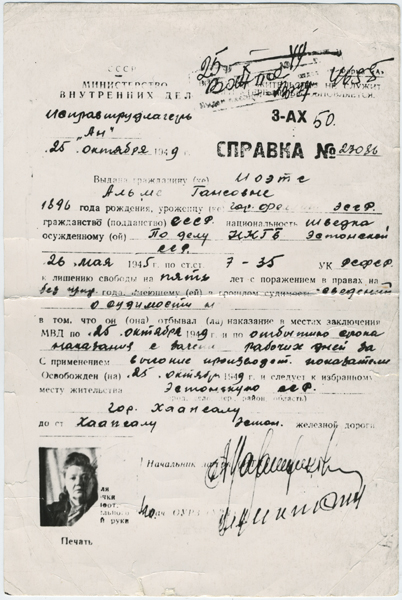 СССР
МИНИСТЕРСТВО
ВНУТРЕННИХ ДЕЛ
НЕ СЛУЖИТ
Исправтрудлагерь
"Ан"
3-АХ 50.
25 октября 1949
СПРАВКА № 23086
Выдана гражданину (ке) Моэтс
Альме Гансовне
1896 года рождения, уроженцу (ке) гор. ЭССР
гражданство (подданство) СССР национальность шведка
осужденному (ой) По делу НКГБ Эстонской
ССР.
26 мая 1945 г. по ст.ст. 7-35 УК РСФСР
к лишению свободы на пять лет с поражением в правах на
года, имеющему (ей) в прошлом судимость сведений
о судимости н
в том, что он (она) отбывал (ла) наказание в местах заключения
МВД по 25 октября 1949 г. и по отбытию срока
наказания с зачет. рабочих дней за
С применением высокие производст. показатели
Освобожден (на) 25 октября 1949 г. и следует к избранному
месту жительства Эстонскую ССР.
(район, область)
гор. Хаапсалу
до ст. Хаапсалу Эстон. железной дороги
Начальник
Печать